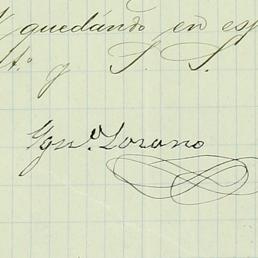 quedándo en es
At.º y S. S.
Ygn.º Lozano